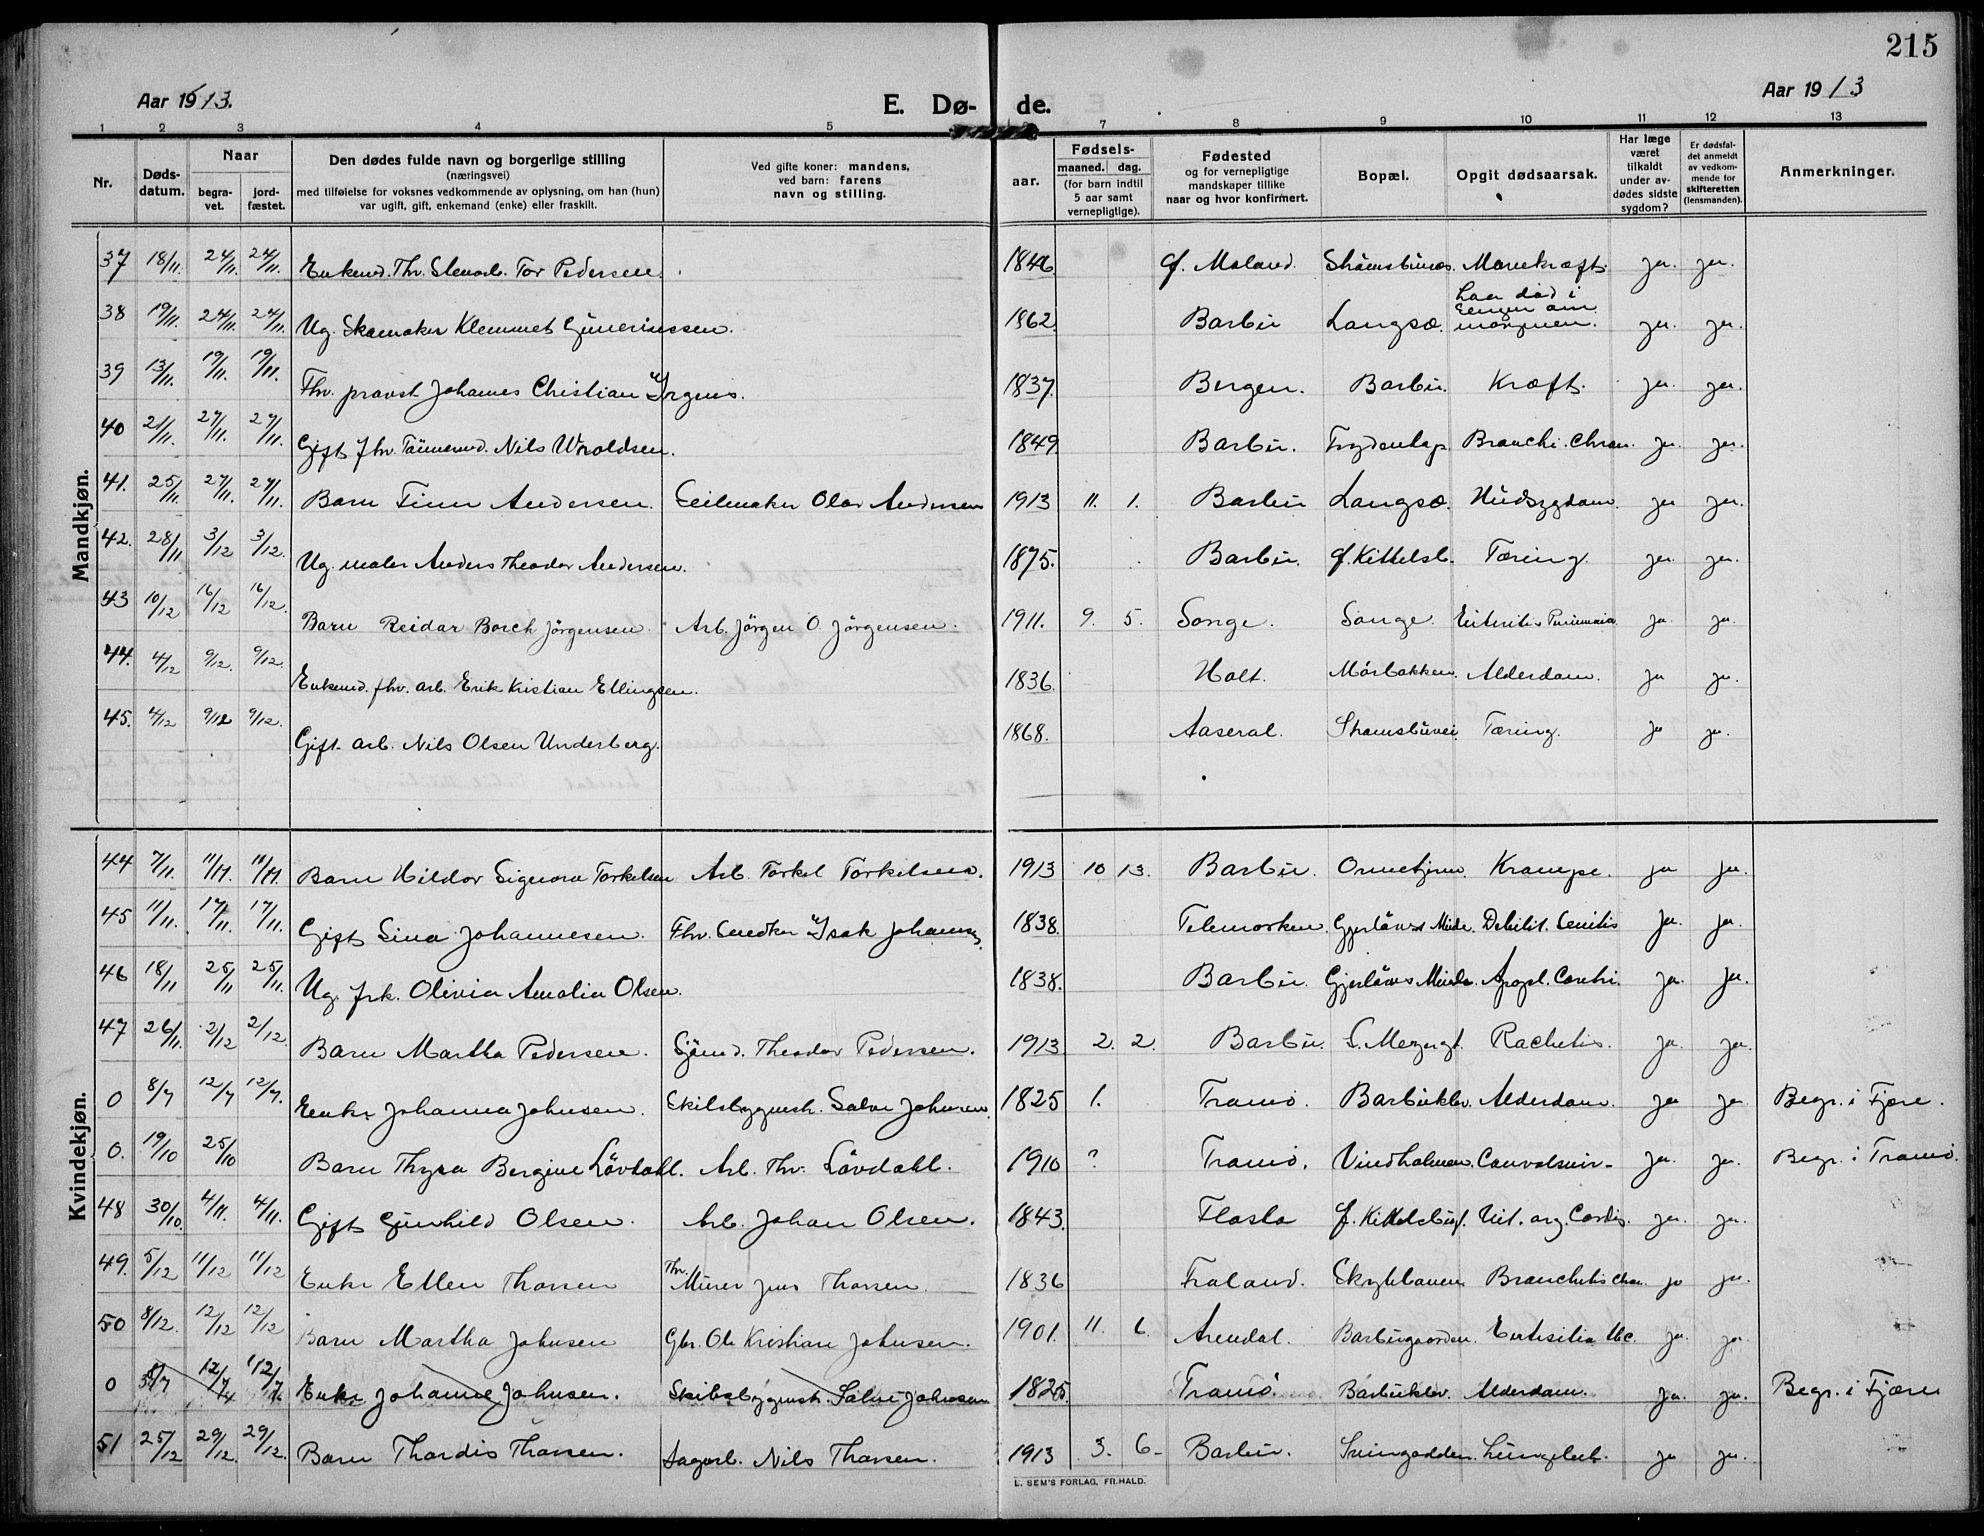 215
Aar 1913.
E. Dø- de.
Aar 1913
1 2 3 4 5 7 8 9 10 11 12 13
Nr.
Døds-
datum.
Naar
begra-
vet.
jord-
fæstet.
Den dødes fulde navn og borgerlige stilling
(næringsvei)
med tilføielse for voksnes vedkommende av oplysning, om han (hun)
var ugift, gift, enkemand (enke) eller fraskilt.
Ved gifte koner: mandens,
ved barn: farens
navn og stilling.
aar.
Fødsels-
maaned. dag.
(for barn indtil
5 aar samt
vernepligtige).
Fødested
og for vernepligtige
mandskaper tillike
naar og hvor konfirmert.
Bopæl.
Opgit dødsaarsak.
Har læge
været
tilkaldt
under av-
dødes sidste
sygdom?
Er dødsfal-
det anmeldt
av vedkom-
mende for
skifteretten
(lensmanden).
Anmerkninger.
Mandkjøn.
37 18/11. 24/11. 24/11. Enkemd. Thv. Stenarb. Tor Pedersen. 1846. Ø. Moland. Mavekræft. ja. ja.
38 19/11. 24/11. 24/11. Ug. Skomaker Klemmet Guneriussen. 1862. Barbu Langsæ. Laa død i sengen om morgenen. ja. ja.
39 13/11. 19/11. 19/11. Fhv. provst Johannes Christian Irgens. 1837. Bergen. Barbu. Kræft. ja. ja.
40 21/11. 27/11. 27/11. Gift fhv. Tømmermd. Nils Woroldsen. 1849. Barbu. Bronchi. Chron. ja. ja.
41. 25/11. 27/11. 27/11. Barn Finn Andersen. Seilmaker Olav Andersen 1913 11. 1. Barbu Langsæ. Hudsygdom. ja ja.
42. 28/11 3/12 3/12. Ug. maler Anders Theodor Andersen. 1875. Barbu. Ø. Kittelsb. Tæring. ja. ja.
43 10/12 16/12 16/12. Barn Reidar Borch Jörgensen. Arb. Jörgen O. Jörgensen. 1911. 9. 5. Songe. Songe. ja. ja.
44. 4/12 9/12. 9/12. Enkemd. fhv. arb. Erik Kristian Ellingsen. 1836. Holt. Mörbakken. Alderdom. ja ja.
45. 4/12 9/12 9/12. Gift arb. Nils Olsen Underberg. 1868. Aaseral. Tæring. ja ja.
Kvindekjøn.
44 7/11. 11/11. 11/11. Barn Hildor Signora Torkelsen Arb. Torkel Torkelsen. 1913 10 13. Barbu. Krampe. ja ja.
45 11/11. 17/11. 17/11. Gift Sina Johannesen. Fhv. Snedker Isak Johannesen 1838. Telemarken. Gjerlöws Minde. Debilit. Senilis ja. ja.
46 18/11 25/11 25/11. Ug. frk. Olivia Amalia Olsen. 1838. Barbu. Gjerlöws Minde. Apopl. Cerebri. ja. ja.
47 26/11. 2/12 2/12. Barn Martha Pedersen. Sjömd. Theodor Pedersen. 1913 2. 2. Barbu. Rachitis. ja. ja.
0 8/7 12/7 12/7. Enke Johanna Johnsen. Skibsbygmstr. Salve Johnsen. 1825 1. Tromö. Barbuklev. Alderdom. ja ja. Begr. i Fjære.
0. 19/10 25/10 Barn Thyra Bergine Lövdahl. Arb. Thv. Lövdahl. 1910 ? Tromö. Vindholmen. ja. ja. Begr. i Tromö.
48 30/10. 4/11. 4/11. Gift Gunhild Olsen. Arb. Johan Olsen. 1843. Flosta Vit. org. Cordis. ja. ja.
49. 5/12 11/12 11/12 Enke Ellen Thorsen Fhv. Murer Jens Thorsen. 1836 Froland. Bronchitis chron. ja ja.
50 8/12. 12/12 12/12 Barn Martha Johnsen Gbr. Ole Kristian Johnsen. 1901. 11. 6. Arendal. Barbugaarden. ja. ja.
0 8/7 12/7 12/7 Enke Johanne Johnsen. Skibsbygmstr. Salve Johnsen 1825. Tromö Barbuklev. Alderdom. ja. ja. Begr. i Fjære
51 25/12 29/12. 29/12. Barn Thordis Thorsen. Sagarb. Nils Thorsen. 1913 3. 6- Barbu. Songeodden. Lungebet. ja ja.
L. SEM'S FORLAG, FR.HALD.